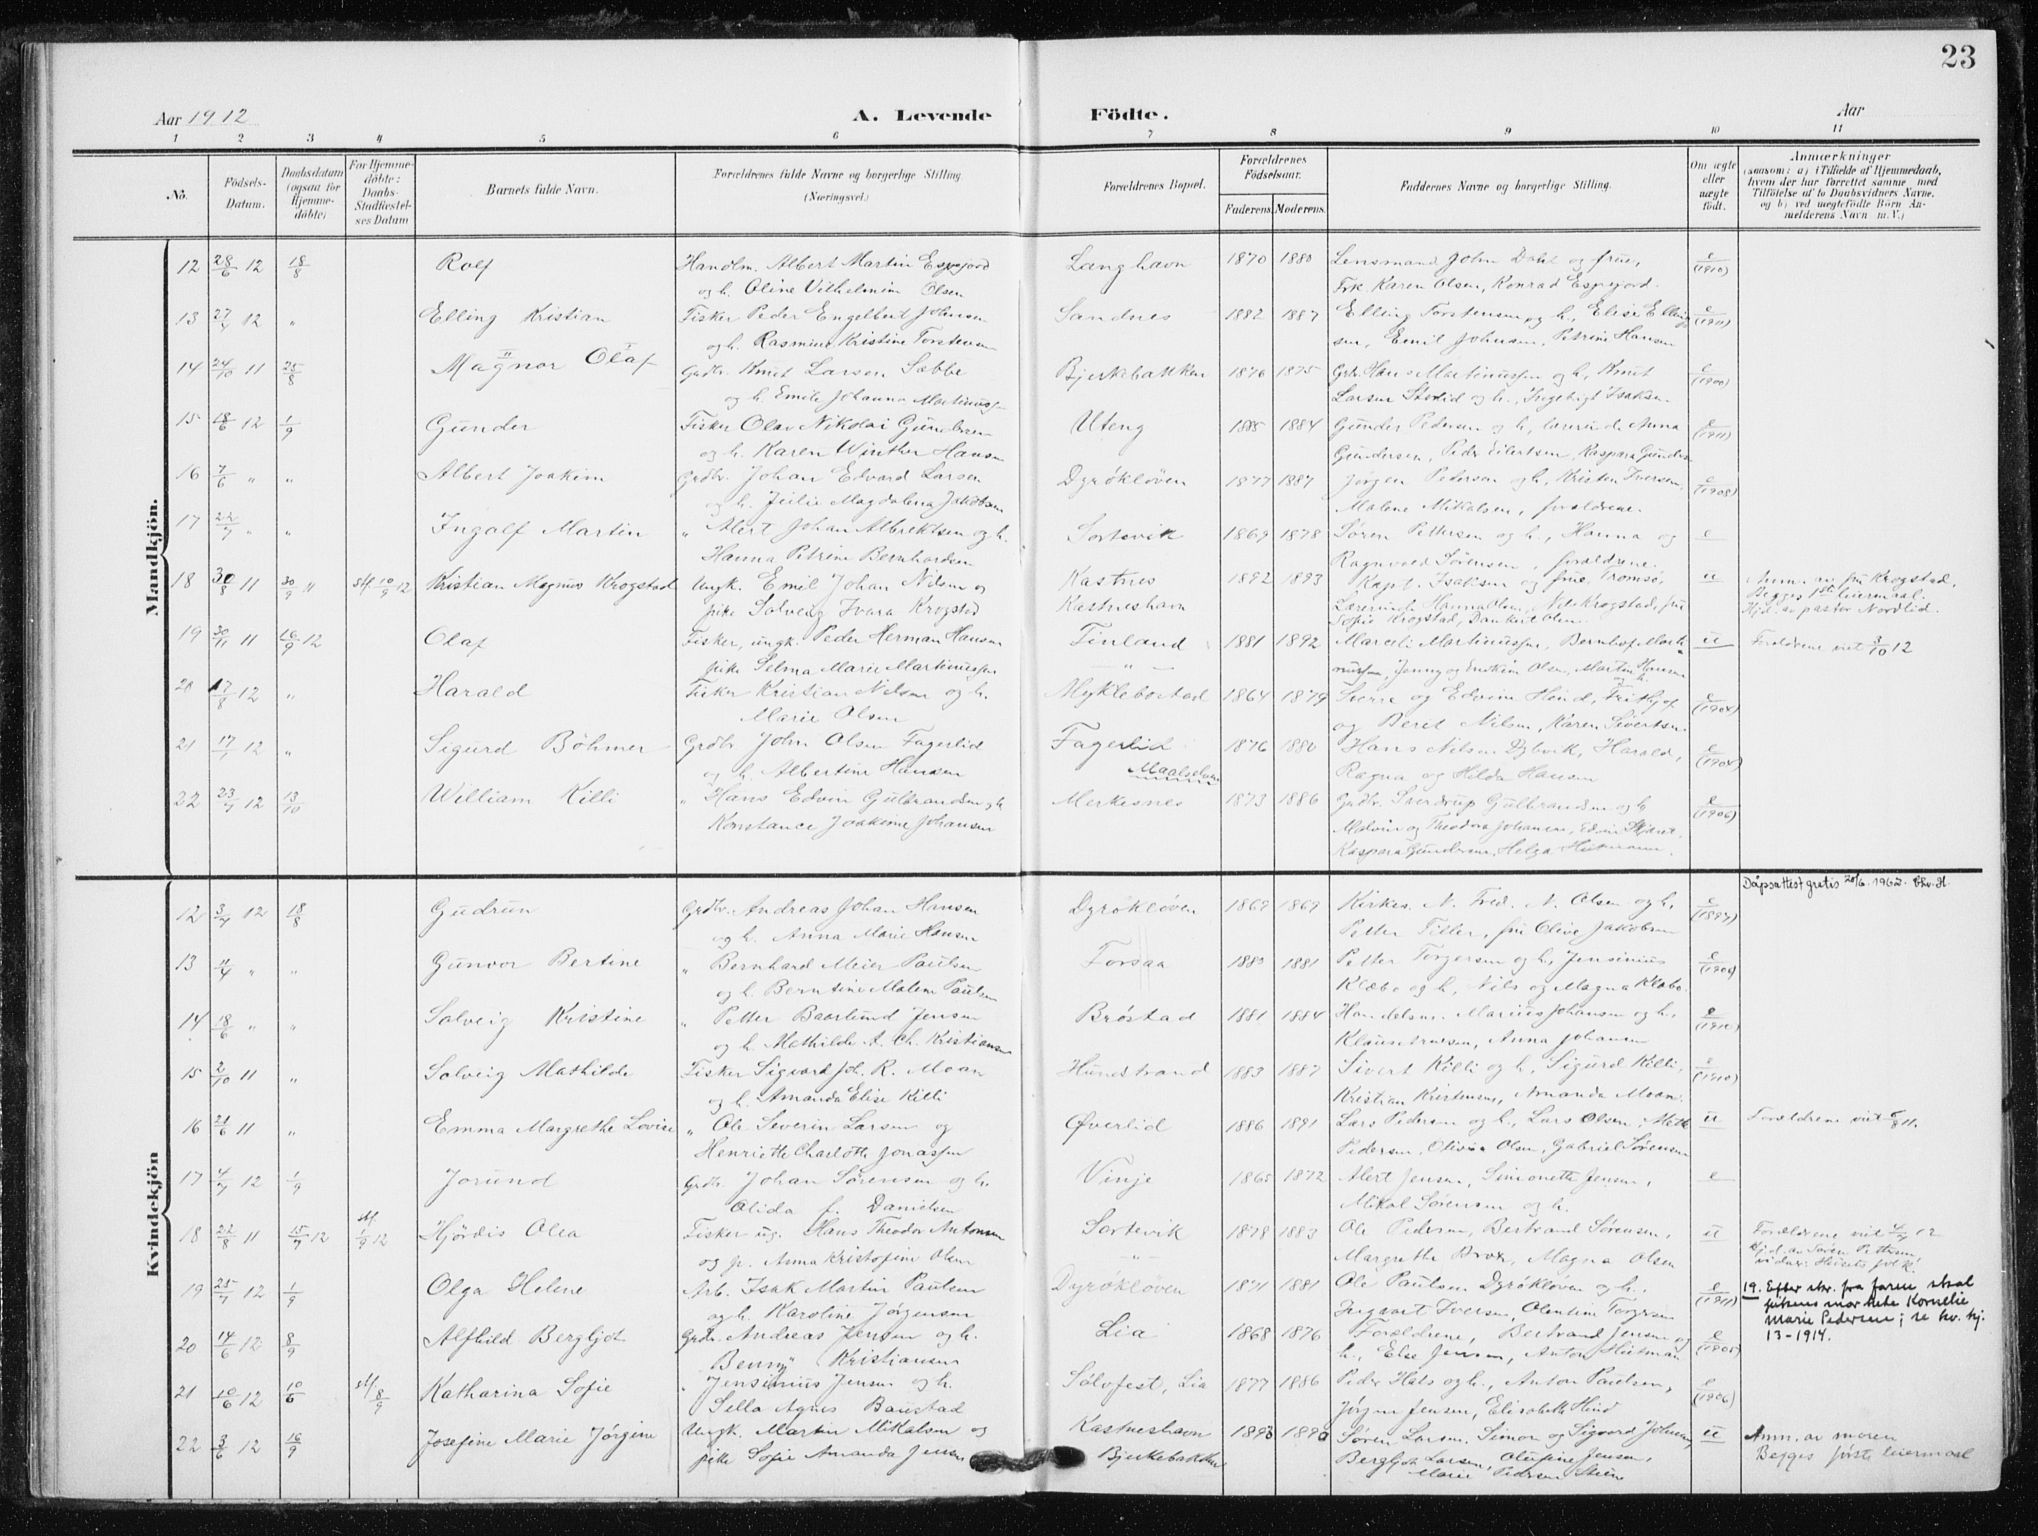 23
Aar 1912
A. Levende
Födte.
Aar
1 2 3 4 5 6 7 8 9 10 11
No.
Födsels-Datum.
Daabsdatum (ogsaa for Hjemme-døbte)
For Hjemme-døbte: Daabs-Stadfæstel-ses Datum
Barnets fulde Navn.
Forældrenes fulde Navne og borgerlige Stilling. (Næringsvei.)
Forældrenes Bopæl.
Forældrenes Födselsaar.
Faderens. Moderens.
Faddernes Navne og borgerlige Stilling.
Om ægte eller uægte født.
Anmærkninger
(saasom: a) i Tilfælde af Hjemmedaab, hvem der har forrettet samme med Tilföielse af to Daabsvidners Navne, og b) ved uægtefödte Börn An-melderens Navn m. V.)
Mandkjön.
12 28/6 12 18/8 Rolf Handlm. Albert Martin Espejord Langhavn 1870 1880 Lensmand John Dahl og frue, e
og h. Oline Vilhelmine Olsen Frk. Karen Olsen, Konrad Espejord. (1910)
13 27/4 12 " Elling Kristian Fisker Peder Engelbert Johnsen Sandnes 1882 1887 Elling Torstensen og h., Elise Elling- e
og h. Rasmine Kristine Torstensen sen, Emil Johnsen, Petrine Hansen (1911)
14 24/10 11 25/8 Magnor Olaf Grdbr. Knut Larsen Sebbe Bjerkebakken 1876 1875 Grb. Hans Martinussen og h., Knut e
og h. Emilie Johanna Martinussen Larsen og h., Ingebrigt Isaksen. (1900)
15 18/6 12 1/9 Gunder Fisker Olav Nikolai Gundersen Uteng 1885 1884 Gunder Pedersen og h., lærerinde Anna e
og h. Karen Winther Hansen Gundersen, Peder Eilertsen, Kaspara Gundersen (1911)
16 7/6 " " Albert Joakim Grdbr. Johan Edvard Larsen Dyrökløven 1877 1887 Jørgen Pedersen og h., Kristen Iversen, e
og h. Magdalena Jakobsen Malene Mikalsen, forældrene. (1908)
17 22/7 " " Ingolf Martin " Alert Johan Albrektsen og h. Sortevik 1869 1878 Søren Pettersen og h., Hanna og e
Hanna Petrine Bernhardsen Ragnvald Sørensen, forældrene.
18 30/8 11 30/9 " stf. 10/9 12 Kristian Magnus Krogstad Ungk. Emil Johan Nilsen og Kastnes 1892 1893 Kapt. Isaksen og frue, Tromsø, u Anm. av fru Krogstad.
pike Solveig Ivara Krogstad Kastneshavn Lærerinde Hanna Olsen, Nils Krogstad, fru Begges 1ste leiermaal.
Sofie Krogstad, Dankert Olsen. Hjd. av pastor Nordlid.
19 30/11 11 16/9 12 Olaf Fisker, ungk. Peder Herman Hansen Finland 1881 1892 Marceli Martinussen, Bernhof Marti- u Forældrene viet 3/10 12
pike Selma Marie Martinussen " nussen, Jenny og Enokine Olsen, Martin Hansen og h.
20 17/8 12 " Harald Fisker Kristian Nilsen og h. Myklebostad 1864 1879 Sverre og Edvin Hind, Frithjof e
Marie Olsen og Beret Nilsen, Karen Sivertsen. (1904)
21 17/7 12 " Sigurd Böhmer Grdbr. John Olsen Fagerlid Fagerlid 1876 1880 Hans Nilsen Dybvik, Harald, e
og h. Albertine Hansen Maalselven Ragna og Hilda Hansen (1904)
22 23/7 12 13/10 William Killi " Hans Edvin Gulbrandsen og h. Merkesnes 1873 1886 Grdbr. Sverdrup Gulbrandsen og h. e
Konstance Joakime Johansen Malvin og Theodora Johansen, Edvin (1906)
Kaspara Gundersen, Helga
Kvindekjön
Dåpsattest gratis 20/6. 1962. Chr. H.
12 3/7 12 18/8 Gudrun Grdbr. Andreas Johan Hansen Dyrökløven 1869 1869 Kirkes. N. Fred. N. Olsen og h., e
og h. Anna Marie Hansen Petter Tiller, fru Olive Jakobsen (1897)
13 11/4 " " Gunvor Bertine " Bernhard Meier Paulsen Forsaa 1880 1881 Petter Torgersen og h., Jensinius e
og h. Berntine Malene Paulsen Klæbo og h., Nils og Magna Klæbo.
14 18/6 " " Solveig Kristine " Petter Baarlund Jensen Bröstad 1881 1884 Handelsm. Marius Johansen og h., e
og h. Mathilde A. Ch. Kristiansen Klaus Arnesen, Anna Johansen (1910)
15 2/10 11 " Solveig Mathilde Fisker Sigvard Joh. R. Moan Hundstrand 1883 1887 Sivert Killi og h., Sigurd Killi, e
og h. Amanda Elise Killi Kristian Kristensen, Amanda Moan. (1910)
16 21/6 11 " Emma Margrethe Lovise " Ole Severin Larsen og Øverlid 1886 1891 Lars Pedersen og h., Lars Olsen, u Forældrene viet
Henriette Charlotte Jonassen Pedersen, Olivia Olsen, Gabriel Sørensen
17 4/7 12 1/9 Jorund Grdbr. Johan Sørensen og h. Vinje 1865 1872 Alert Jensen, Simonette Jensen, e
Olida f. Danielsen Mikal Sørensen og h.
18 22/8 11 15/7 12 stf. 1/9 12 Hjördis Olea Fisker ug. Hans Theodor Antonsen Sortevik 1878 1883 Ole Pedersen, Bertrand Sørensen, u Forældrene viet 12
og p. Anna Kristofine Olsen " Margrethe Brox, Magna Olsen Hjd. av Søren Pettersen, vidner: Husets folk.
19 25/7 12 1/9 Olga Helene Arb. Isak Martin Paulsen Dyrökløven 1871 1881 Ole Paulsen Dyrökløven og h., e 19. Efter skr. fra faren skal
og h. Karoline Jørgensen Ingvart Iversen, Olentine Torgersen (1911) pikens mor hete Kornelie
Marie Pedersen; se kv. kj.
13-1914.
20 14/6 12 8/9 Alfhild Bergljot Grdbr. Andreas Jensen og h. Lia 1868 1876 Forældrene, Bertrand Jensen og e
Benny Kristiansen h., Else Jensen, Anton (1905)
21 10/6 12 10/6 stf. 8/9 Katharina Sofie " Jensinius Jensen og h. Solvfest, Lia 1877 1886 Peder Hals og h., Anton Paulsen, e
Sella Agnes Baustad Jörgen Jensen, Elisabeth Hind (1906)
22 3/6 12 16/9 Josefine Marie Jørgine Ungk. Martin Mikalsen og Kastneshavn 1893 1890 Søren Larsen, Simon og Sigvard Johnsen, u Anm. av moren
pike Sofie Amanda Jensen Bjerkebakken Bergljot Larsen, Olufine Jensen, Begges første leiermaal
Marie Pedersen